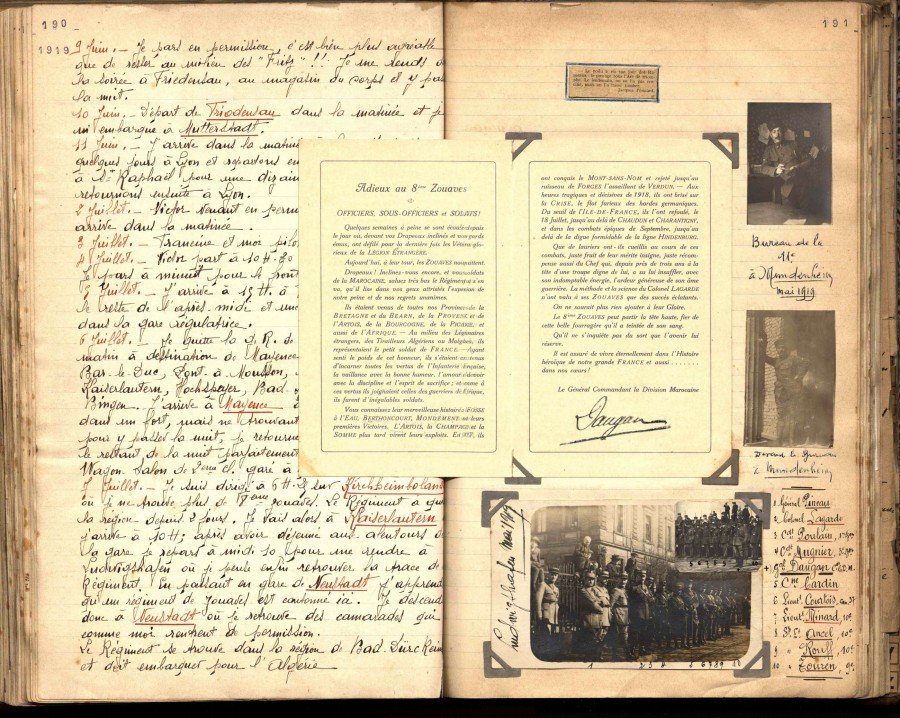 190
1919 9 Juin. – Je pars en permission, c'est bien plus agréable
que de rester au milieu des "Fritz" !!. Je me rends
la soirée à Friedensau, au magasin du corps et y pas
la nuit.
10 Juin. – Départ de Friedensau dans la matinée et je
m'embarque à Mutterstadt.
11 Juin. – J'arrive dans la matin
quelques jours à Lyon et repartons en
à St Raphaël pour une dizain
retournons ensuite à Lyon.
2 Juillet. – Victor venant en perm
arrive dans la matinée.
3 Juillet. – Francine et moi
4 Juillet. – Victor part à 10H.30
Je pars à minuit pour le front
5 Juillet. – J'arrive à 15 H. à
le reste de l'après midi et une
dans la gare régulatrice.
6 Juillet. – Je quitte la G. R. de
matin à destination de Mayence
Bar-le-Duc, Pont-à-Mousson,
Kaiserlautern, Hochspeyer, Bad
Bingen. J'arrive à Mayence à
dans un fort, mais ne trouvant
pour y passer la nuit, je retourne
le restant de la nuit parfaitement
Wagon-Salon de 2eme cl. garé à
7 Juillet. – Je suis dirigé à 6H. sur Kircheimboland
où je ne trouve plus de 8eme zouaves. Le Régiment a qu
la région depuis 2 jours. Je vais alors à Kaiserlautern
j'arrive à 10H; après avoir déjeuné aux alentours de
la gare je repars à midi 10 pour me rendre à
Ludwigshafen où je pense enfin retrouver la trace de
Régiment. En passant en gare de Neustadt j'apprend
qu'un régiment de zouaves est cantonné ici. Je descend
donc à Neustadt où je retrouve des camarades qui
comme moi rentrent de permission.
Le Régiment se trouve dans la région de Bad. Dürckheim
et doit embarquer pour l'Algérie
Adieux au 8me Zouaves
OFFICIERS, SOUS-OFFICIERS et SOLDATS!
Quelques semaines à peine se sont écoulées depuis
le jour où, devant vos Drapeaux inclinés et vos gards
émus, ont défilé pour la dernière fois les Vétérans glo-
rieux de la LÉGION ÉTRANGÈRE.
Aujourd'hui, à leur tour, les ZOUAVES nous quittent.
Drapeaux! Inclinez-vous encore, et vous soldats
de la MAROCAINE, saluez très bas le Régiment qui s'en
va, qu'il lise dans nos yeux attristés l'aveu de
notre peine et de nos regrets unanimes.
Ils étaient venus de toutes nos Provinces: de la
BRETAGNE et du BÉARN, de la PROVENCE et de
l'ARTOIS, de la BOURGOGNE, de la PICARDIE, et
aussi de l'AFRIQUE. – Au milieu des Légionnaires
étrangers, des Tirailleurs Algériens ou Malgaches, ils
représentaient le petit soldat de FRANCE. – Ayant
senti le poids de cet honneur, ils s'étaient
d'incarner toutes les vertus de l'Infanterie française,
la vaillance avec la bonne humeur, l'amour du devoir
avec la discipline et l'esprit de sacrifice; et comme à
ces vertus ils joignaient celles des guerriers d'Afrique,
ils furent d'inégalables soldats.
Vous connaissez leur merveilleuse histoire: FOSSE
à L'EAU, BERTHONCOURT, MONDEMENT et leurs
premières Victoires. L'ARTOIS, la CHAMPAGNE et la
SOMME plus tard virent leurs exploits. En 1917, ils
191
Jacques Péricard.
ont conquis le MONT-SANS-NOM et rejeté jusqu'au
ruisseau de FORGES l'assaillant de VERDUN. – Aux
heures tragiques et décisives de 1918, ils ont brisé sur
la CRISE, le flot furieux des hordes germaniques.
Du seuil de l'ILE-DE-FRANCE, ils l'ont refoulé, le
18 Juillet, jusqu'au delà de CHAUDUN et CHARANTIGNY,
et dans les combats épiques de Septembre, jusqu'au
delà de la digue formidable de la ligne HINDENBURG.
Que de lauriers ont-ils cueillis au cours de ces
combats, juste fruit de leur mérite insigne, juste récom-
pense aussi du Chef qui, depuis près de trois ans à la
tête d'une troupe digne de lui, a su lui insuffler, avec
son indomptable énergie, l'ardeur généreuse de son âme
guerrière. La méthode et la science du Colonel LAGARDE
n'ont valu à ses ZOUAVES que des succès éclatants.
On ne saurait plus rien ajouter à leur Gloire.
Le 8me ZOUAVES peut partir la tête haute, fier de
cette belle fourragère qu'il a teintée de son sang.
Qu'il ne s'inquiète pas du sort que l'avenir lui
réserve.
Il est assuré de vivre éternellement dans l'Histoire
héroïque de notre grande FRANCE et aussi . . . . . . .
dans nos cœurs!
Le Général Commandant la Division Marocaine
Daugan
Bureau de la
11e
à Mundenheim
mai 1919
Devant le Bureau
à Mundenheim
Ludwigshafen mai 1919
1 2 3 4 5 6 7 8 9 10
1 Général Pineau
2 Colonel Lagarde
3 Cdt Poulain,
4 Cdt Mugnier,
+) Gal Daugan
5 Cne Cardin
6 Lieut. Courtois
7 Lieut. Minard, 10e
8 St Lt Ancel, 10e
9 " Rouff, 10e
10 " Touren, 9e